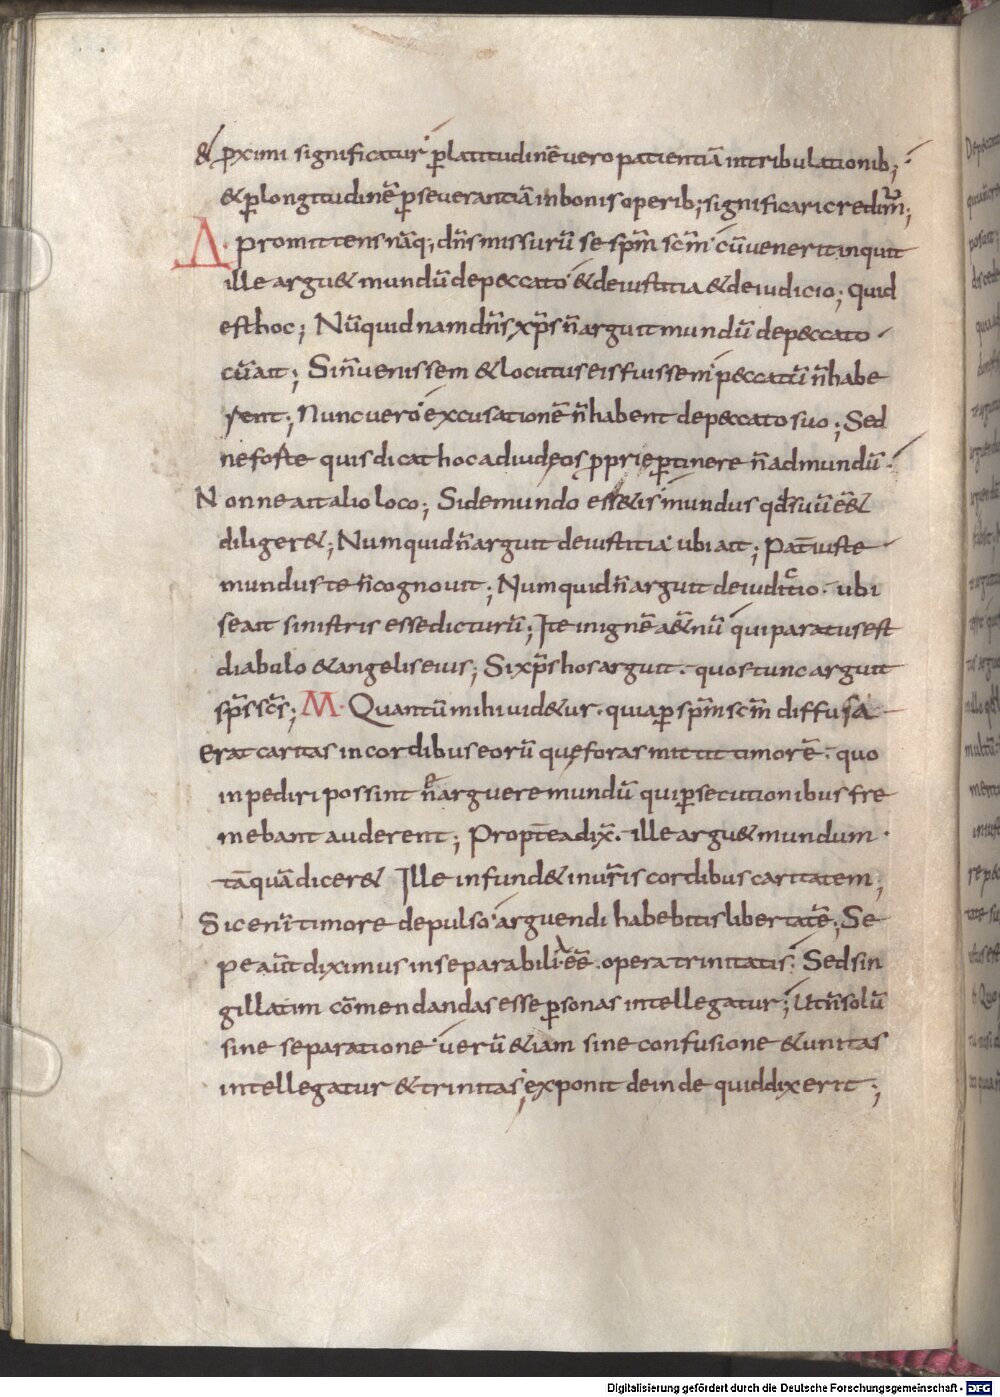 & ꝓximi significatur ꝑlatitudinē vero patientiā in tribulationib;
& ꝑlongitudinē ꝑseverantiā in bonis operib; significari credim̄;
Δ· promittens nāq; dn̄s missurū se sp̄m sc̄m cū venerit inquit
ille argu& mundū de peccato & de iustitia & de iudicio; Quid
est hoc; Nūquid nam dn̄s xp̄s n̄ arguit mundū de peccato·
cū ait; Si n̄ venissem & locutus eis fuissem peccatū n̄ habe
rent; Nunc vero excusationē n̄ habent de peccato suo; Sed
ne forte quis dicat hoc ad iudęos ꝓprię ꝑtinere n̄ ad mundū·
Nonne ait alio loco; Si de mundo ess&is mundus qd̄ suū ē&
diliger&; Numquid n̄ arguit de iustitia ubi ait; Pat̄ iuste
mundus te n̄ cognovit; Numquid n̄ arguit de iuditio· ubi
se ait sinistris esse dicturū; Ite in ignē a&nū qui paratus est
diabulo & angelis eius; Si xp̄s hos arguit· quos tunc arguit
sp̄s sc̄s; M· Quantū mihi vid&ur· quia ꝑ sp̄m sc̄m diffusa
erat caritas in cordibus eorū que foras mittit timorē· quo
inpediri possint n̄ arguere mundū qui ꝑsecutionibus fre
mebant auderent; Propt̄ea dix̄· ille argu& mundum·
tāquā dicer& Ille infund& in vūris cordibus caritatem;
Sic eni timore depulso arguendi habebitis libertatē; Se
pe aūt diximus inseparabilia ēē opera trinitatis· Sed sin
gillatim cōmendandas esse ꝑsonas intellegatur; Ut n̄ solū
sine separatione verū &iam sine confusione & unitas
intellegatur & trinitas; exponit deinde quid dixerit;
Digitalisierung gefördert durch die Deutsche Forschungsgemeinschaft - DFG